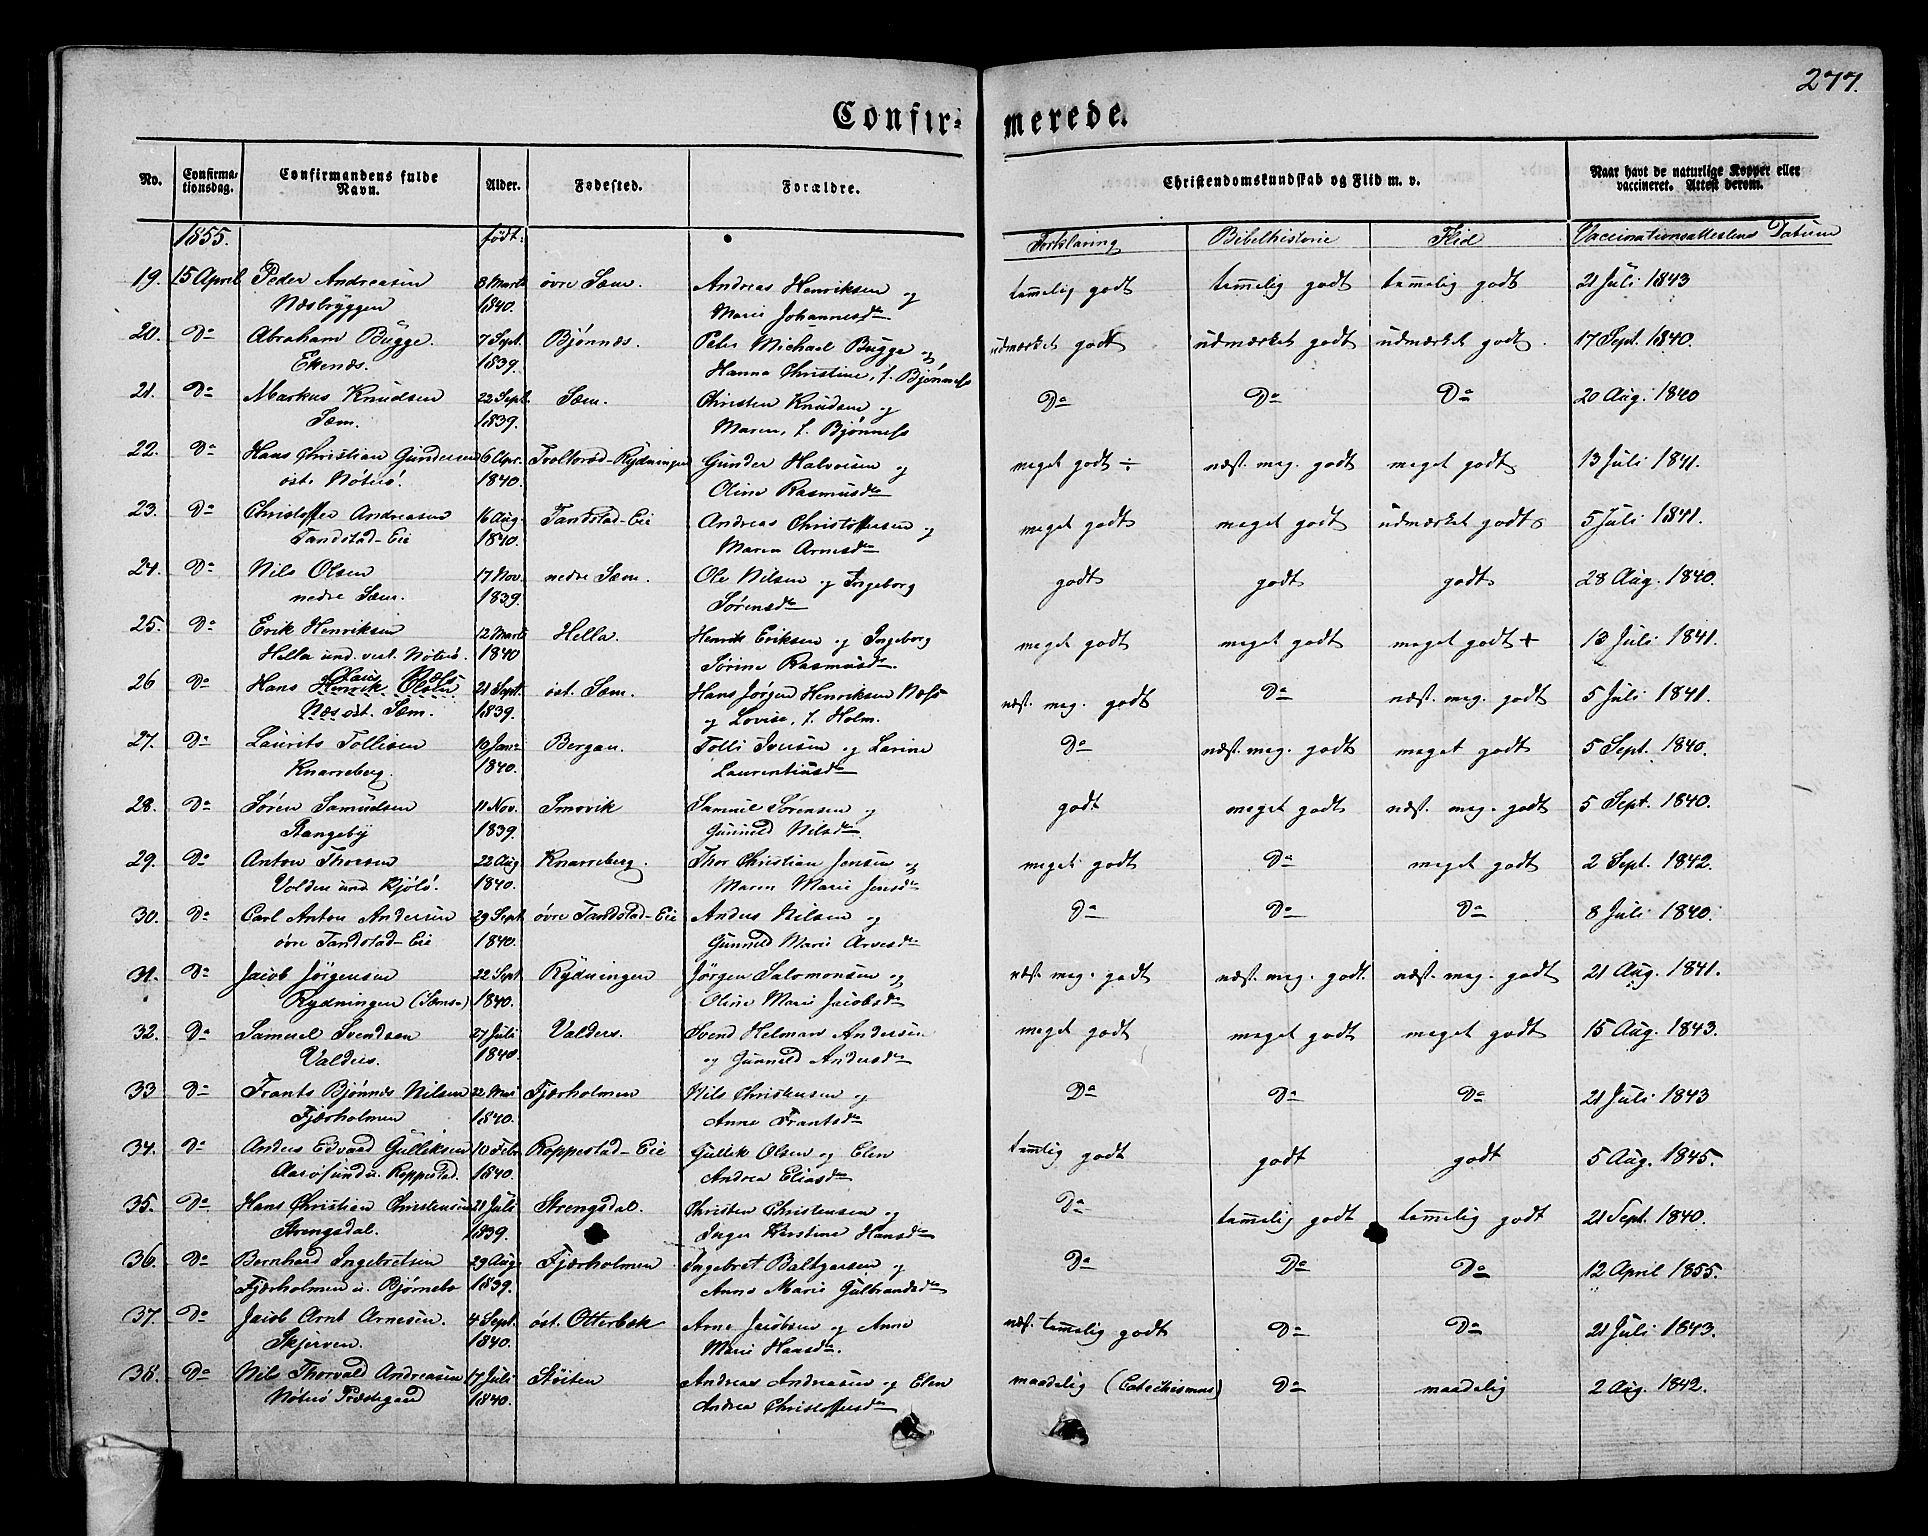 277.
Confir- merede.
No. Confirmationsdag. Confirmandens fulde Navn. Alder. Fødested. Forældre. Christendomskundskab og Flid m. v. Naar havt de naturlige Kopper eller vaccineret. Attest derom.
1855. født: Forklaring Bibelhistorie Flid Vaccinationsattestens Datum
19. 15 April Peder Andreasen 3 Marts øvre Sæm. Andreas Henriksen og tam̅elig godt tam̅elig godt tam̅elig godt 21 Juli 1843
Næsbryggen 1840. Marie Johannesdr
20. Do Abraham Bugge. 7 Sept. Bjønnæs. Peter Michael Bugge og udmærket godt udmærket godt udmærket godt. 17 Sept. 1840.
Ekenæs. 1839. Hanna Christine, f. Bjønness
21. Do Markus Knudsen 22 Sept. Sæm. Christen Knudsen og Do Do Do 20 Aug. 1840
Sæm. 1839. Maren, f. Bjønness
22. Do Hans Christian Gundersen 6 Apr. Tvolterød-Rydningen Gunder Halvorsen og meget godt ÷ næst. meg. godt meget godt 13 Juli 1841.
østr. Nøterø. 1840. Oline Rasmusdr
23. Do Christoffer Andreasen 16 Aug. Tandstad-Eie Andreas Christoffersen og meget godt meget godt udmærket godt 5 Juli 1841.
Tandstad-Eie 1840. Maren Arnesdr
24. Do Nils Olsen 17 Nov. nedre Sæm. Ole Nilsen og Ingeborg godt godt godt 28 Aug. 1840.
nedre Sæm. 1839. Sørensdr
25. Do Erik Henriksen 12 Marts Hella. Henrik Eriksen og Ingeborg meget godt meget godt meget godt + 13 Juli 1841.
Hella und. vest. Nøterø. 1840 Sørine Rasmusdr
26 Do Hans Henrik Olsen 21 Sept. øst. Sæm. Hans Jørgen Henriksen Næss næst. meg. godt Do næst. meg. godt 5 Juli 1841.
Næs øst. Sæm. 1839. og Lovise, f. Holm.
27. Do Laurits Tollisen 19 Janr Bergan. Tolli Iversen og Larine Do næst. meg. godt meget godt 5 Sept. 1840.
Knarreberg. 1840. Laurentiusdr
28. Do Søren Samuelsen 11 Nov. Smovik Samuel Sørensen og godt meget godt næst. meg. godt 5 Sept. 1840.
Stangeby 1839. Gunnild Nilsdr
29. Do Anton Thorsen 22 Aug Knarreberg. Thor Christian Jensen og meget godt Do meget godt 2 Sept. 1842.
Volden und Kjølø. 1840. Maren Marie Jensdr
30. Do Carl Anton Andersen 29 Sept. øvre Tandstad-Eie Anders Nilsen og Do Do Do 8 Juli 1840.
øvre Tandstad-Eie 1840. Gunnild Marie Arnesdr
31. Do Jacob Jørgensen 22 Sept. Rydningen Jørgen Salomonsen og næst. meg. godt næst. meg. godt. næst. meg. godt 21 Aug. 1841.
Rydningen 1840. Oline Marie Jacobsdr
32. Do Samuel Svendsen 27 Juli Valders. Svend Helman Andersen meget godt meget godt meget godt 15 Aug. 1843.
Valders. 1840. og Gunnild Andersdr
33 Do Frants Bjønnæs Nilsen 22 Mai Fjærholmen Nils Christensen og Do Do Do 21 Juli 1843
Fjærholmen 1840. Anne Frantsdr
34. Do Anders Edvard Gulliksen 10 Febr Roppestad-Eie Gullik Olsen og Elen tam̅elig godt godt godt 5 Aug. 1845.
Aarøsund u. Roppestad. 1840. Andrea Eliasdr
35. Do Hans Christian Christensen 21 Juli Strengsdal. Christen Christensen og Do tam̅elig godt tam̅elig godt 21 Sept. 1840.
Strengsdal. 1839. Inger Kirstine Hansdr
36. Do Bernhard Ingebretsen 29 Aug. Fjærholmen Ingebret Baltzersen og Do Do Do 12 April 1855.
Fjærholmen u. Bjørnebo 1839. Anne Marie Gulbrandsdr
37. Do Jacob Arnt Arnesen. 4 Sept. øst. Otterbæk Arne Jacobsen og Anne næst. tam̅elig godt Do Do 21 Juli 1843.
Skjerven. 1840. Marie Hansdr
38. Do Nils Thorvald Andreasen 17 Juli Støiten Andreas Andreasen og Elen maadelig (Catechismus) Do maadelig 2 Aug. 1842.
Nøterø Præstegaard 1840. Andrea Christoffersdr